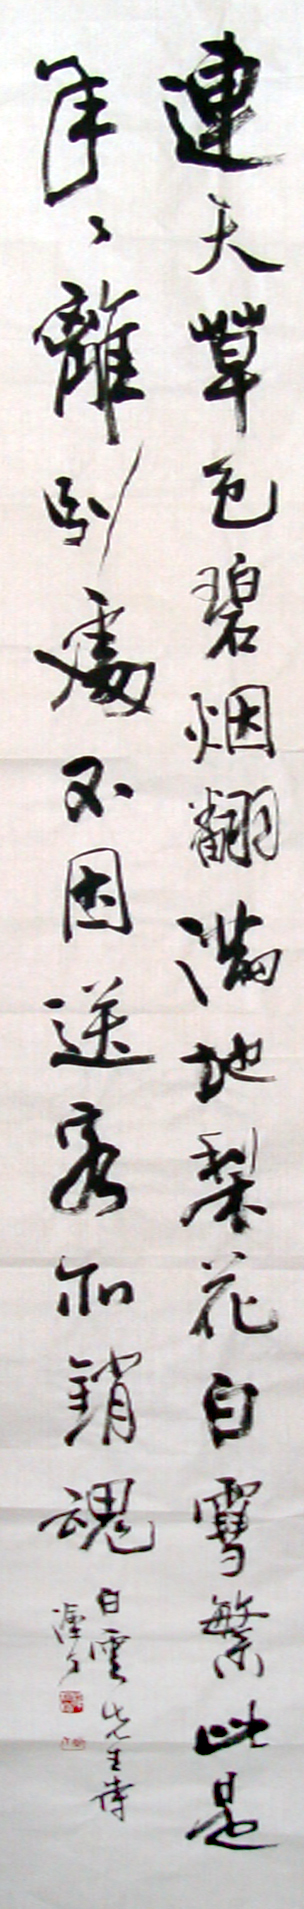 連天草色碧烟翻滿地梨花白雪繁此是
年々離別處不因送客亦銷魂
白雲先生詩